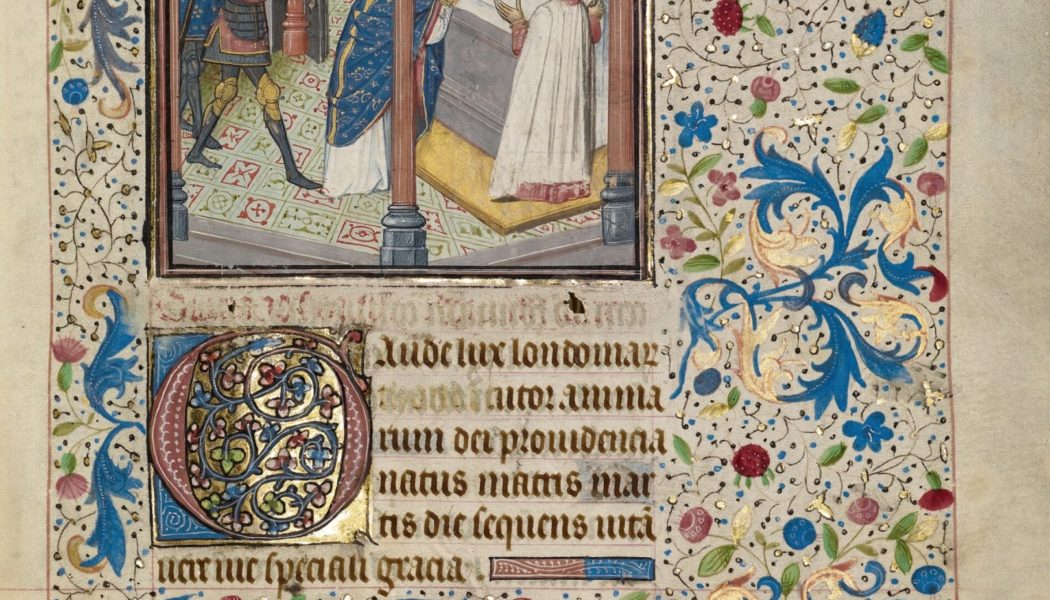 Gaude lux londoniaꝝ
tutor anima
rum dei prouidencia
natus matris mar
tis die sequens uitā
speciali gracia